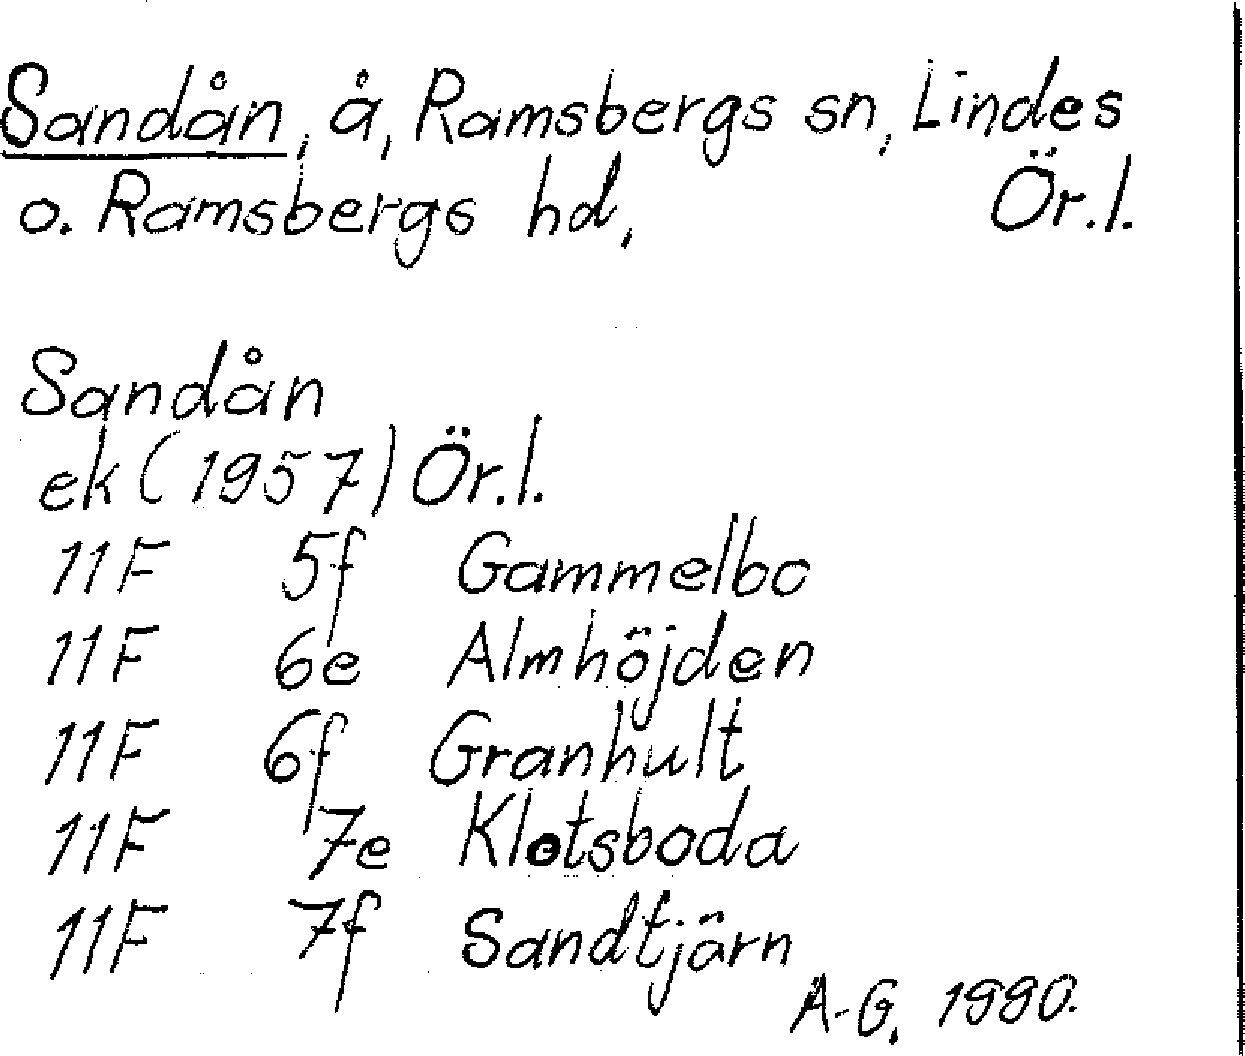 Sandån, å, Ramsbergs sn, Lindes
o. Ramsbergs hd, Ör.l.
Sandån
ek (1957) Ör.l.
11F 5f Gammelbo
11F 6e Almhöjden
11F 6f Granhult
11F 7e Klotsboda
11F 7f Sandtjärn
A-G. 1990.